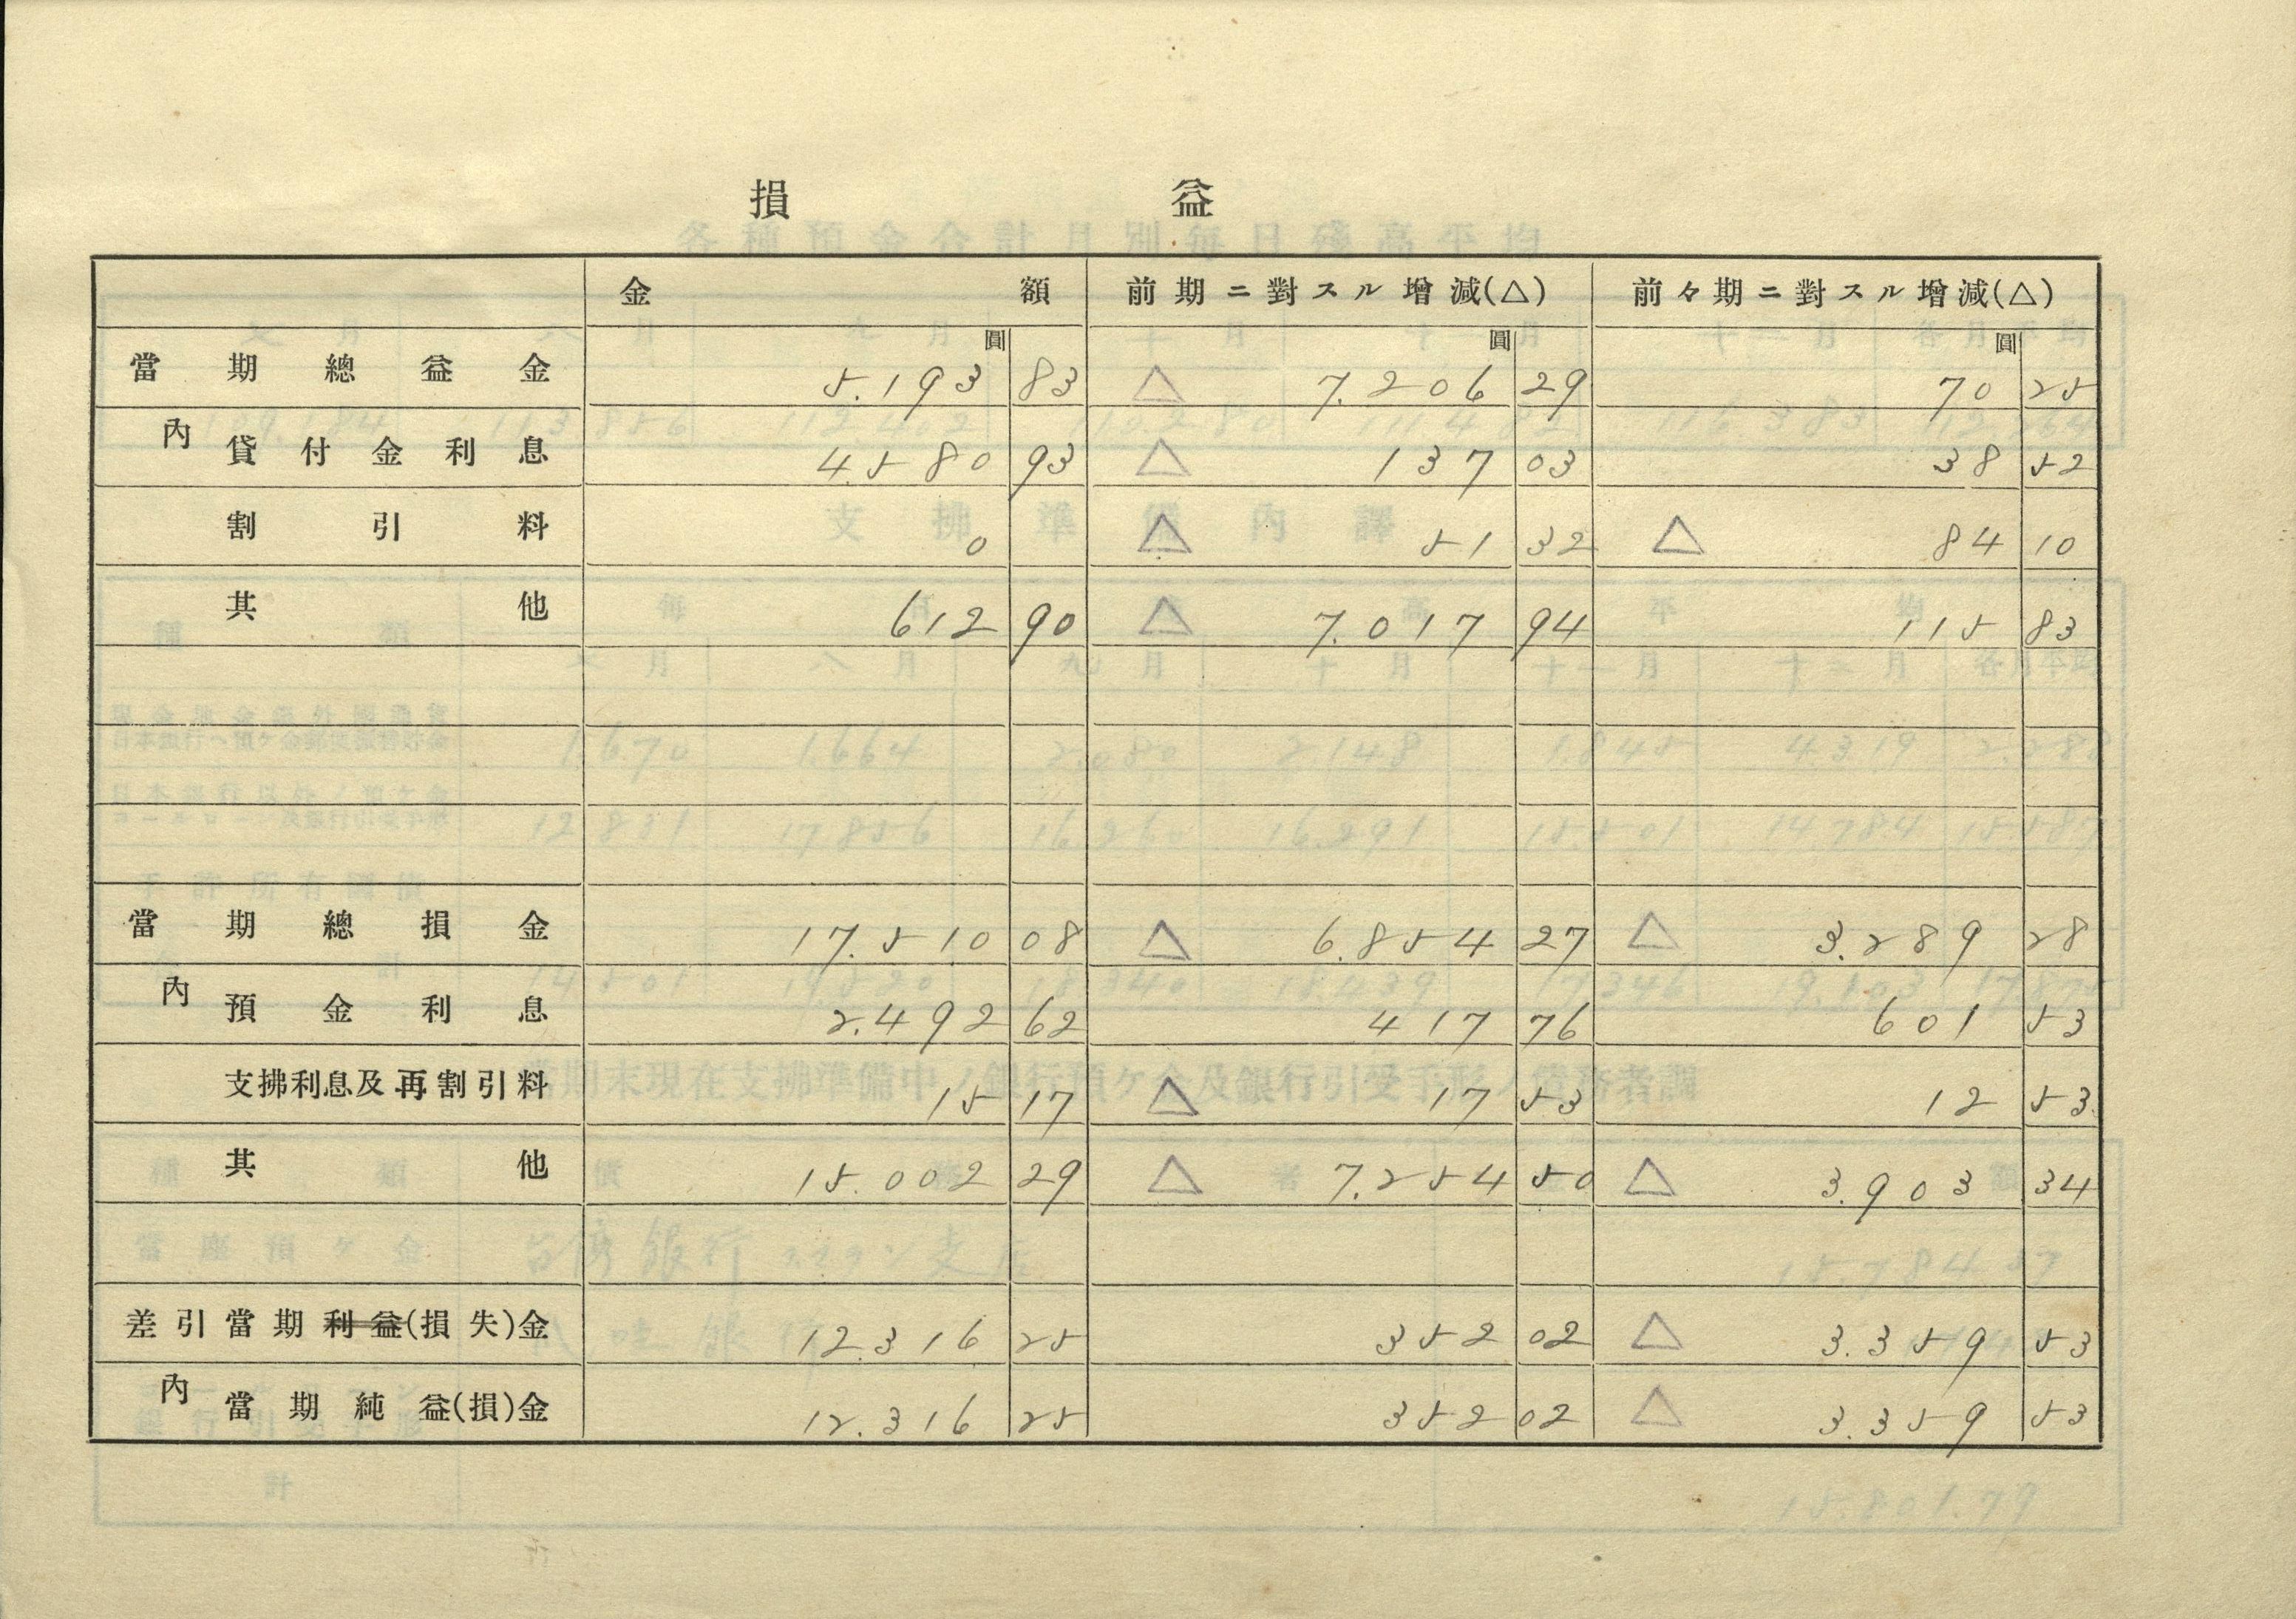 損益
金額 前期ニ對スル增減(△) 前々期ニ對スル增減(△)
圓 圓 圓
當期總益金 5.193 83 △ 7.206 29 70 25
內 貸付金利息 4.580 93 △ 137 03 38 52
割引料 0 △ 51 32 △ 84 10
其他 612 90 △ 7.017 94 115 83
當期總損金 17.510 08 △ 6.854 27 △ 3.289 28
內 預金利息 2.492 62 417 76 601 53
支拂利息及再割引料 15 17 △ 17 53 12 53
其他 15.002 29 △ 7.254 50 △ 3.903 34
差引當期利益(損失)金 12.316 25 352 02 △ 3.359 53
內 當期純益(損)金 12.316 25 352 02 △ 3.359 53